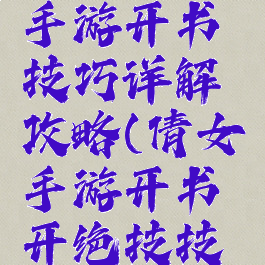 手游开书
技巧详解
攻略(倩女
手游开书
开绝技技